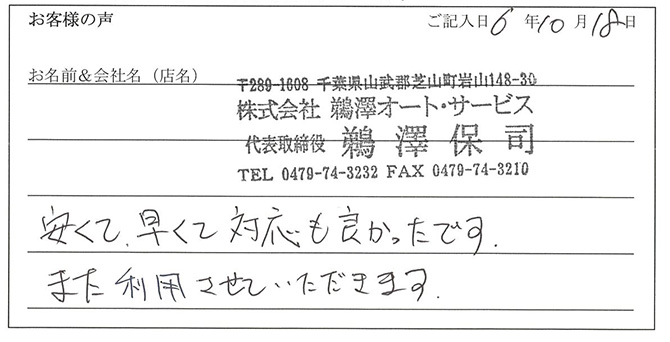 お客様の声 ご記入日 6 年 10 月 18 日
お名前&会社名(店名)
〒289-1608 千葉県山武郡芝山町岩山148-30
株式会社 鵜澤オート・サービス
代表取締役 鵜澤保司
TEL 0479-74-3232 FAX 0479-74-3210
安くて、早くて対応も良かったです.
また利用させていただきます.